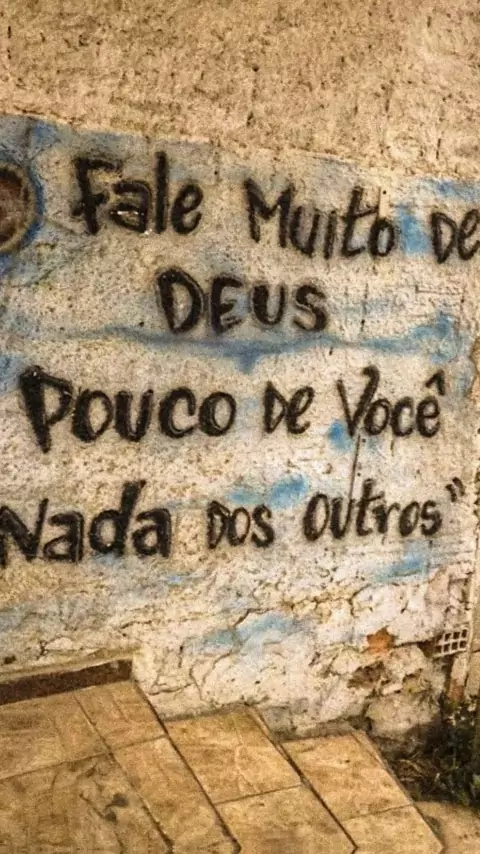 Fale Muito De
DEUS
Pouco De Você
Nada DOS OUtros"